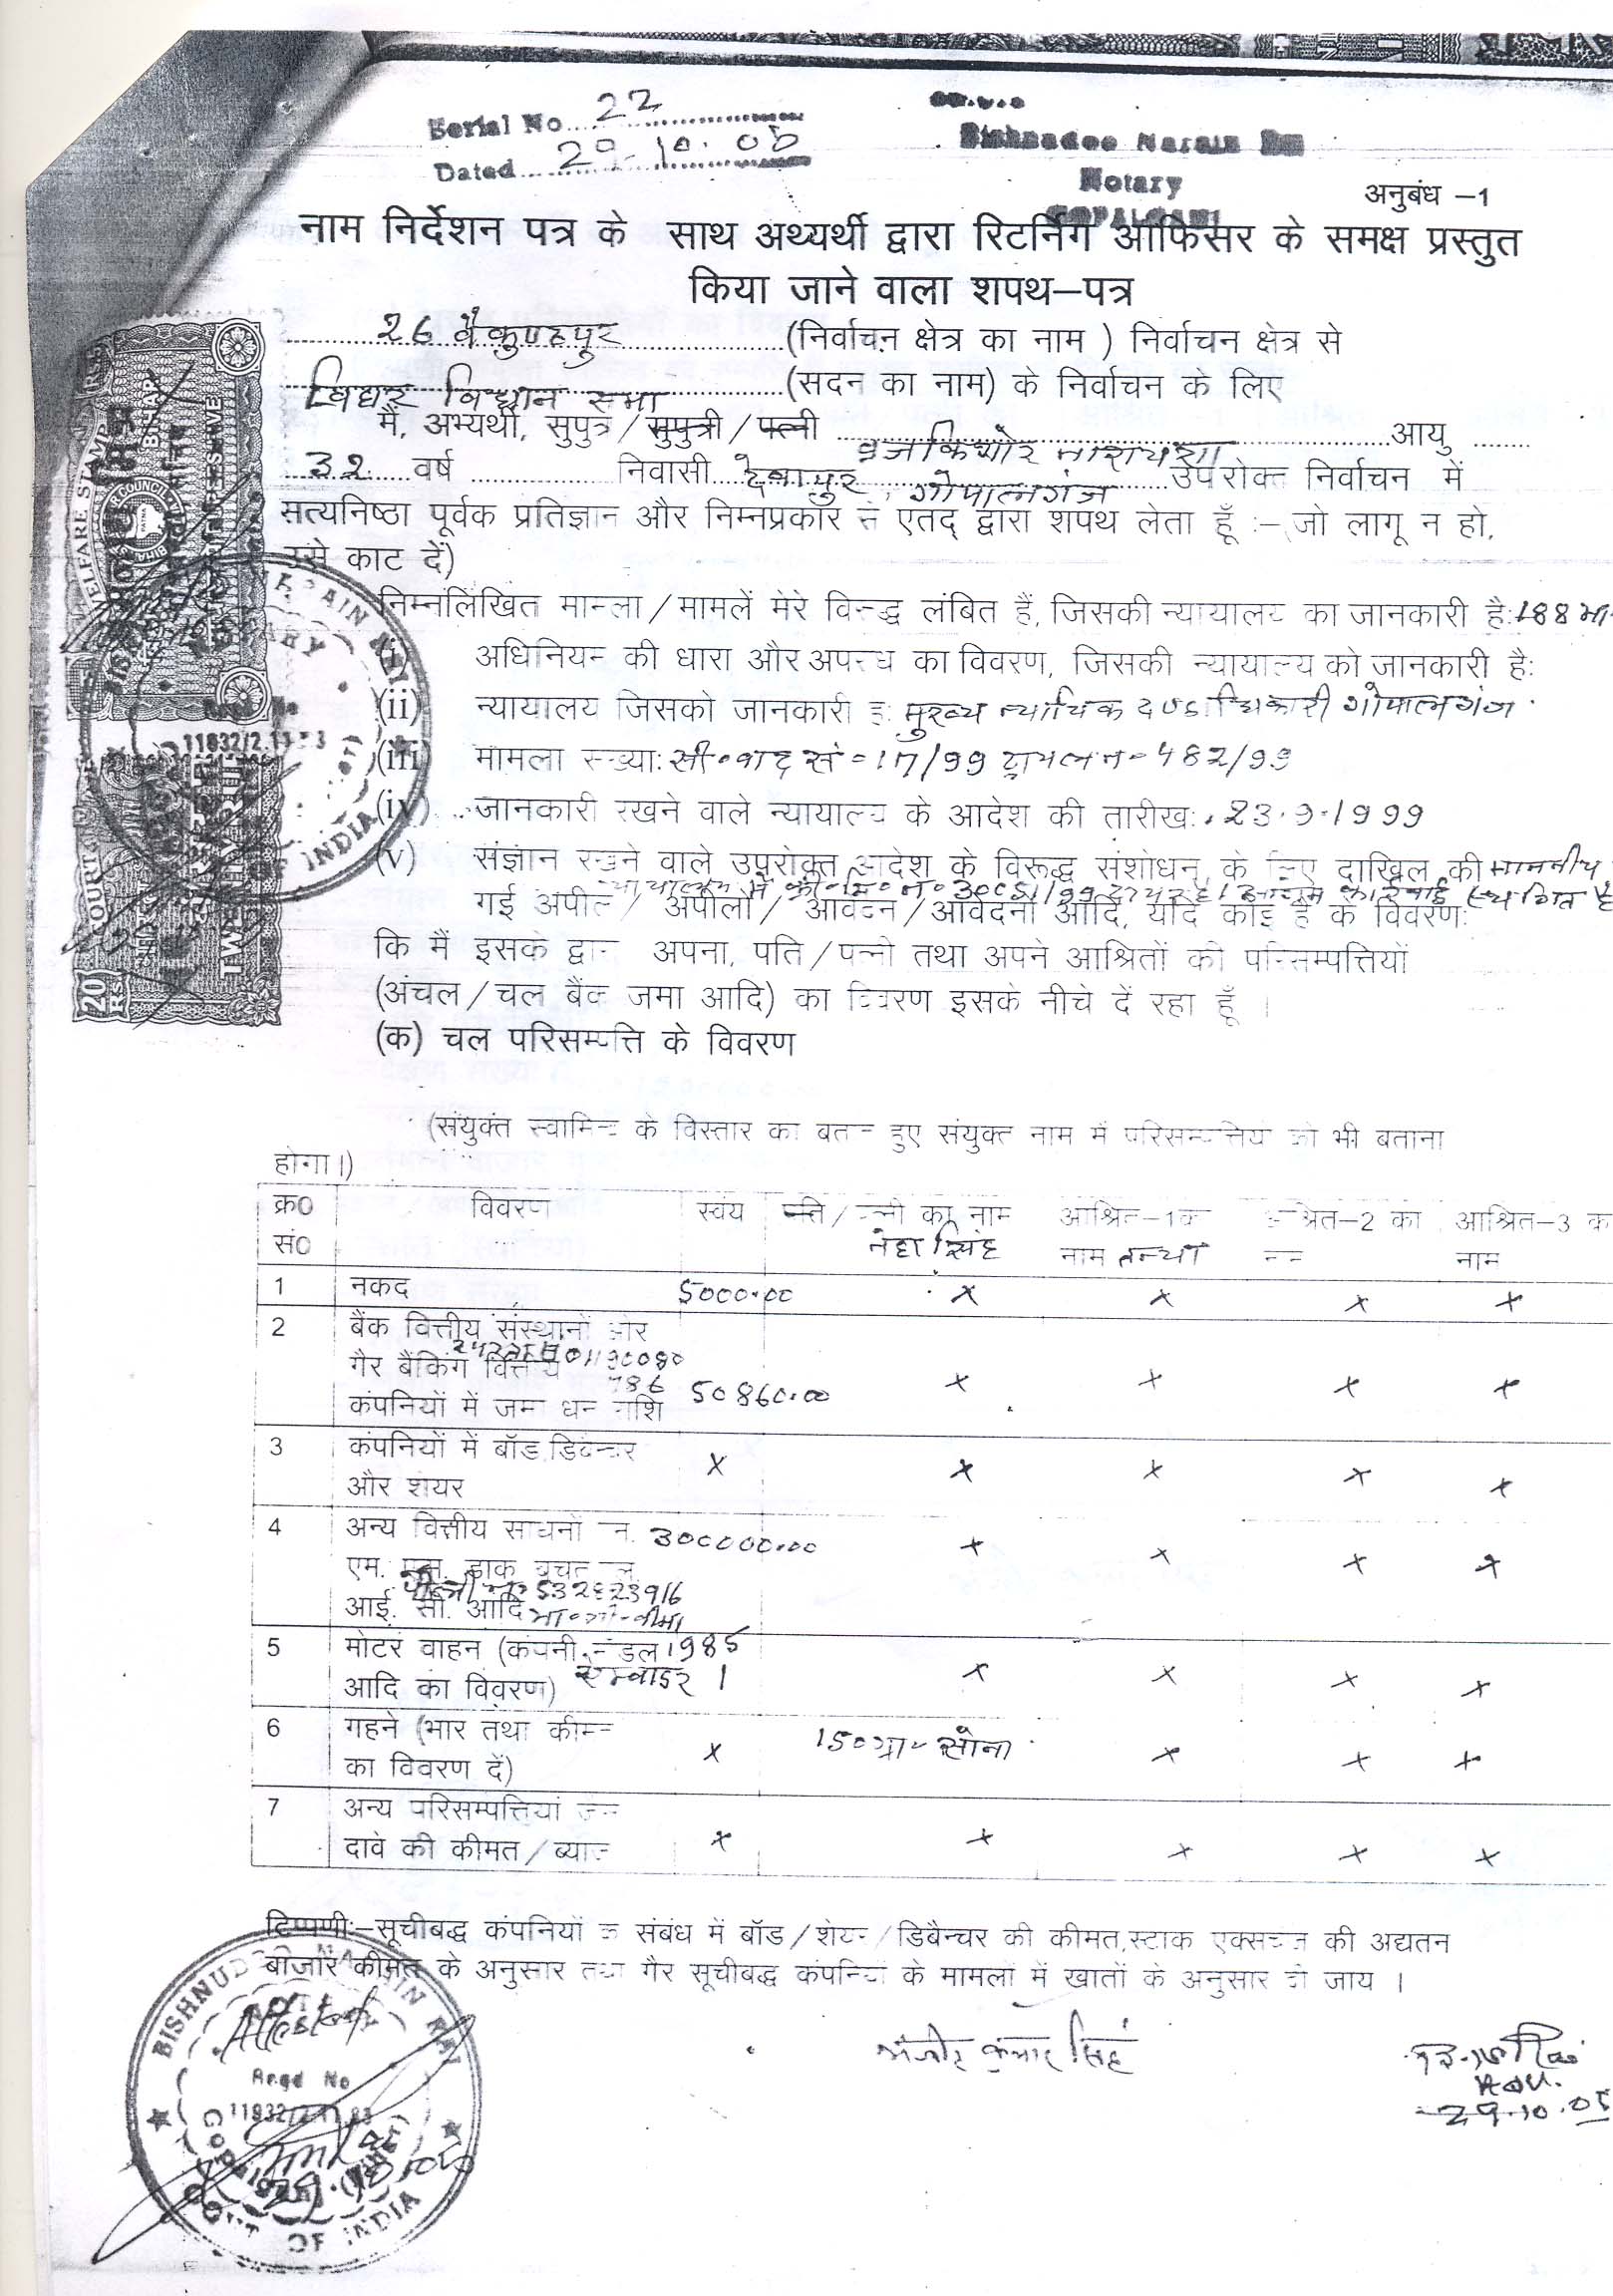 Serial No. 22
Dated 29.10.05
Notary
अनुबंध –1
नाम निर्देशन पत्र के साथ अथ्यर्थी द्वारा रिटर्निंग ऑफिसर के समक्ष प्रस्तुत
किया जाने वाला शपथ–पत्र
26 वैकुण्ठपुर (निर्वाचन क्षेत्र का नाम ) निर्वाचन क्षेत्र से
बिहार विधान सभा (सदन का नाम) के निर्वाचन के लिए
मैं, अभ्यर्थी, सुपुत्र / सुपुत्री / पत्नी ब्रजकिशोर नारायण आयु
32 वर्ष निवासी देवापुर, गोपालगंज उपरोक्त निर्वाचन में
सत्यनिष्ठा पूर्वक प्रतिज्ञान और निम्नप्रकार से एतद् द्वारा शपथ लेता हूँ :– जो लागू न हो,
उसे काट दें)
निम्नलिखित मामला / मामलें मेरे विरूद्ध लंबित हैं, जिसकी न्यायालय का जानकारी है: 188 भा
अधिनियम की धारा और अपराध का विवरण, जिसकी न्यायालय को जानकारी है:
(ii) न्यायालय जिसको जानकारी है: मुख्य न्यायिक दण्डाधिकारी गोपालगंज
(iii) मामला संख्या: सी॰ वाद सं॰ 17/99 ट्रायल न॰ 482/99
(iv) जानकारी रखने वाले न्यायालय के आदेश की तारीख: 23.9.1999
(v) संज्ञान रखने वाले उपरोक्त आदेश के विरूद्ध संशोधन के लिए दाखिल की माननीय
गई अपील / अपीलों / आवेदन / आवेदनों आदि, यदि कोई है के विवरण:
कि मैं इसके द्वारा अपना, पति / पत्नी तथा अपने आश्रितों की परिसम्पत्तियों
(अंचल / चल बैंक जमा आदि) का विवरण इसके नीचे दें रहा हूँ ।
(क) चल परिसम्पत्ति के विवरण
(संयुक्त स्वामित्व के विस्तार का बताते हुए संयुक्त नाम में परिसम्पत्तियों को भी बताना
होगा।)
क्र0 सं0 विवरण स्वंय पति / पत्नी का नाम नेहा सिंह आश्रित–1 का नाम तन्या आश्रित–2 का नाम आश्रित–3 का नाम
1 नकद 5000.00 x x x x
2 बैंक वित्तीय संस्थानों और
गैर बैंकिंग वित्तीय
कंपनियों में जमा धन राशि 50860.00 x x x x
3 कंपनियों में बॉड डिबेन्चर
और शेयर x x x x x
4 अन्य वित्तीय साधनों 300000.00 x x x x
एम. एस. डाक बचत
आई. सी. आदि
5 मोटर वाहन (कंपनी, मॉडल 1985
आदि का विवरण) एम्बेसडर 1 x x x x
6 गहने (भार तथा कीमत
का विवरण दें) x 150 ग्रा॰ सोना x x x
7 अन्य परिसम्पत्तियां जैसे
दावे की कीमत / ब्याज x x x x x
टिप्पणी:–सूचीबद्ध कंपनियों के संबंध में बॉड / शेयर / डिबैन्चर की कीमत,स्टाक एक्सचेंज की अद्यतन
बाजार कीमत के अनुसार तथा गैर सूचीबद्ध कंपनियों के मामलों में खातों के अनुसार दी जाय ।
मंजीत कुमार सिंह
Adv.
29.10.05
BISHNUDEO NARAIN RAI
Attested
Regd No
11932/2.11.83
GOVT OF INDIA